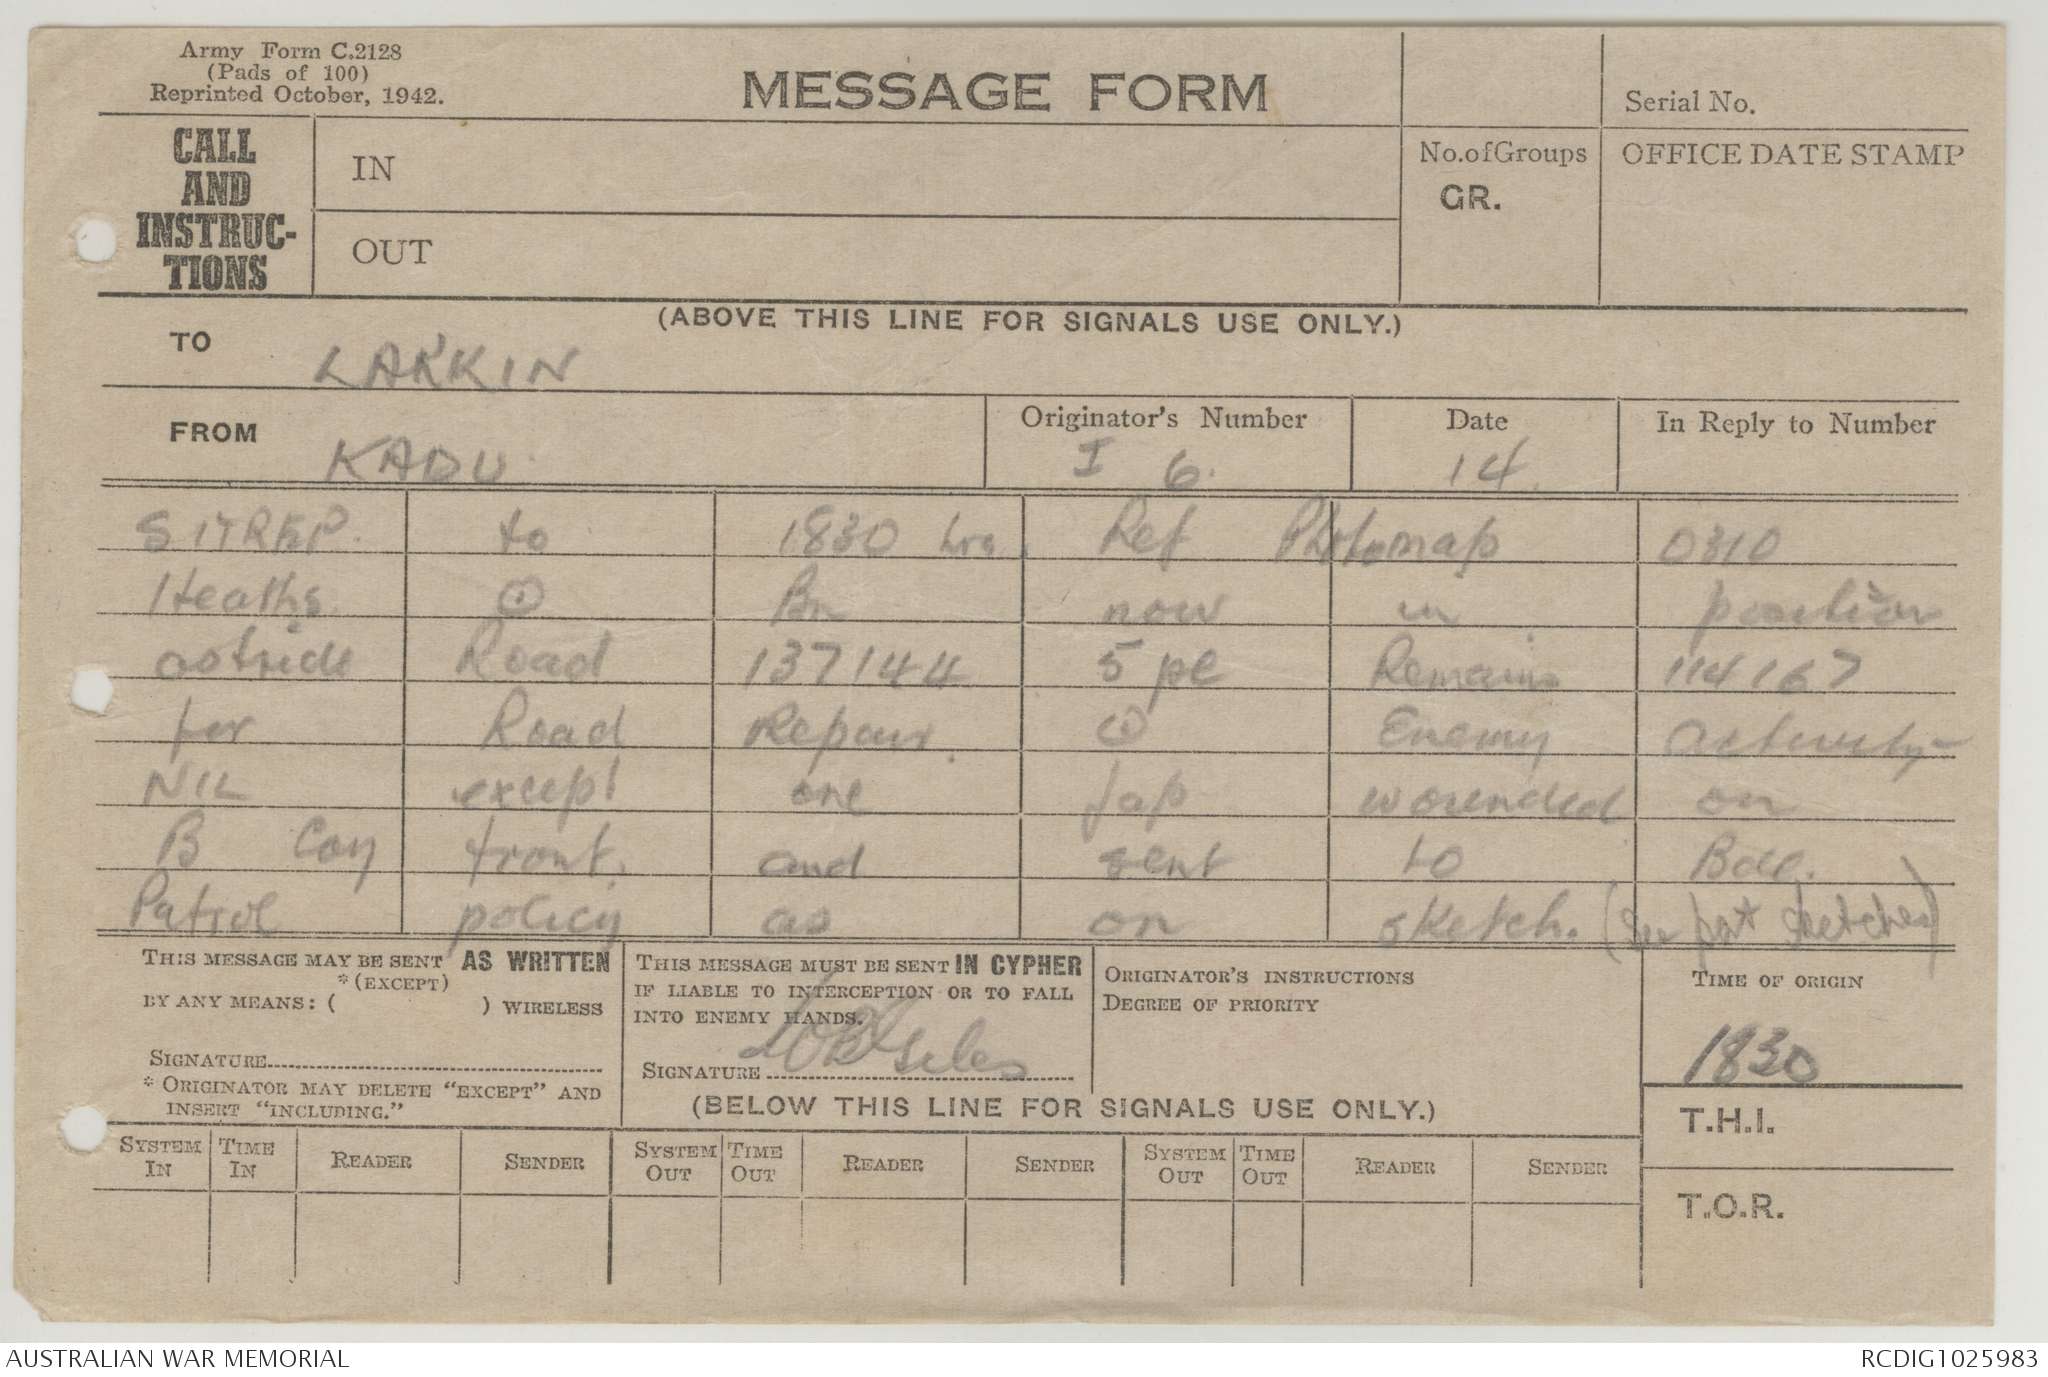 Army Form C.2128
(Pads of 100)
Reprinted October, 1942.
MESSAGE FORM
Serial No.
CALL
AND
INSTRUC-
TIONS
IN
OUT
No. of Groups
GR.
OFFICE DATE STAMP
(ABOVE THIS LINE FOR SIGNALS USE ONLY.)
TO LARKIN
FROM KADU
Originator's Number I 6.
Date 14.
In Reply to Number
SITREP. to 1830 hrs. Ref Photomap 0310
Heaths ⊙ Bn now in position
astride Road 137144 5 pl Remains 114167
for Road Repair. ⊙ Enemy activity-
NIL except one Jap wounded on
B Coy front. and sent to Bde.
Patrol policy as on sketch. (See sketches)
THIS MESSAGE MAY BE SENT AS WRITTEN
*(EXCEPT)
BY ANY MEANS: ( ) WIRELESS
SIGNATURE
* ORIGINATOR MAY DELETE "EXCEPT" AND
INSERT "INCLUDING."
THIS MESSAGE MUST BE SENT IN CYPHER
IF LIABLE TO INTERCEPTION OR TO FALL
INTO ENEMY HANDS.
SIGNATURE
ORIGINATOR'S INSTRUCTIONS
DEGREE OF PRIORITY
TIME OF ORIGIN
1830
T.H.I.
T.O.R.
(BELOW THIS LINE FOR SIGNALS USE ONLY.)
SYSTEM IN TIME IN READER SENDER SYSTEM OUT TIME OUT READER SENDER SYSTEM OUT TIME OUT READER SENDER
AUSTRALIAN WAR MEMORIAL
RCDIG1025983